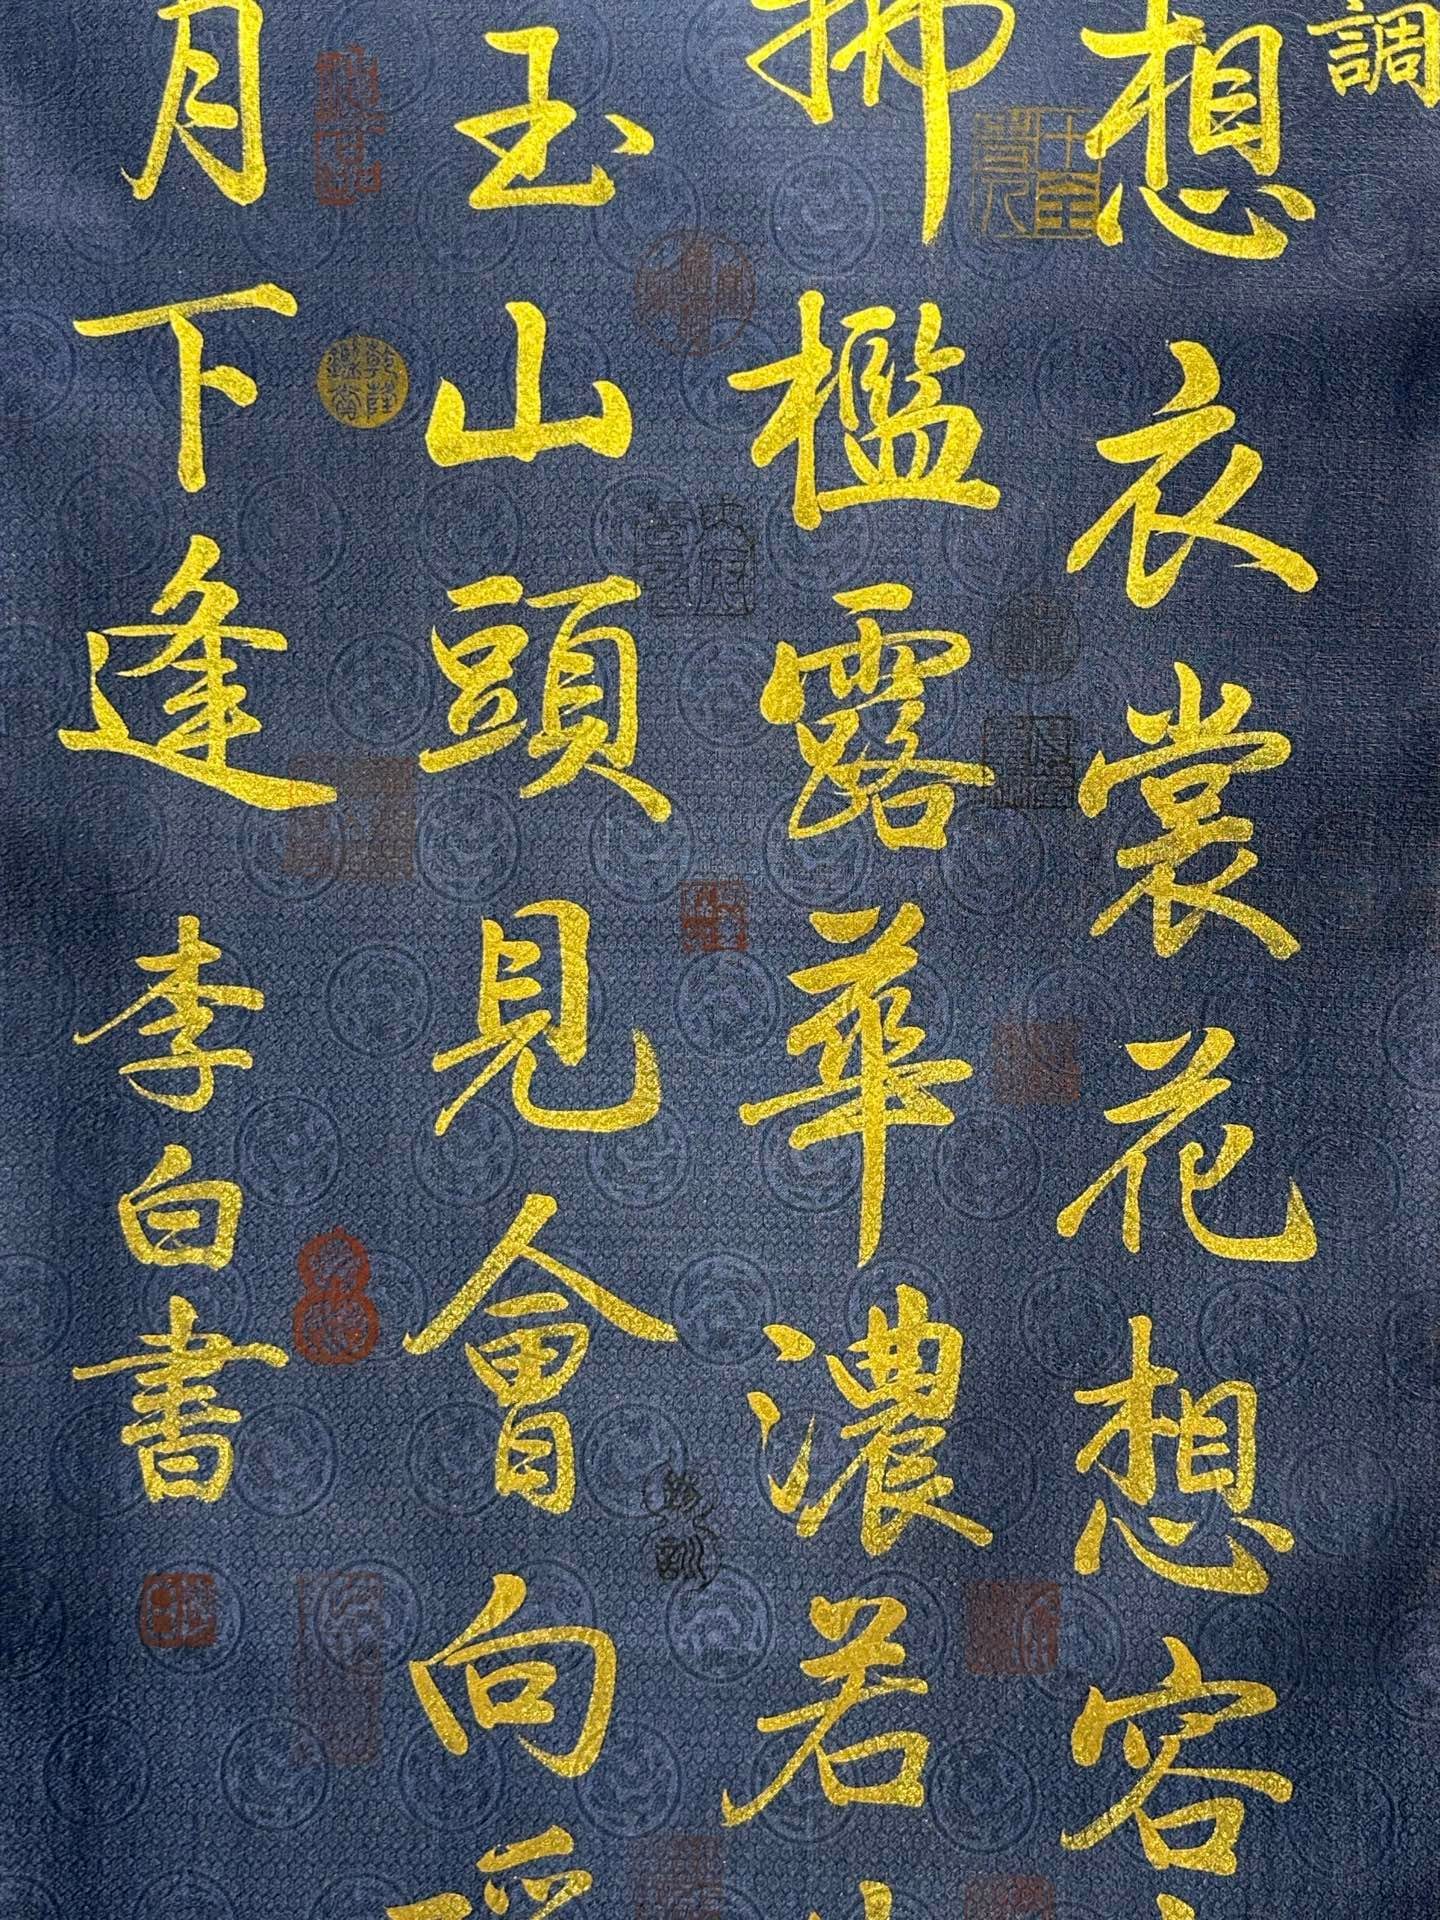 調
想衣裳花想容
拂檻露華濃若
玉山頭見會向瑶
月下逢
李白書